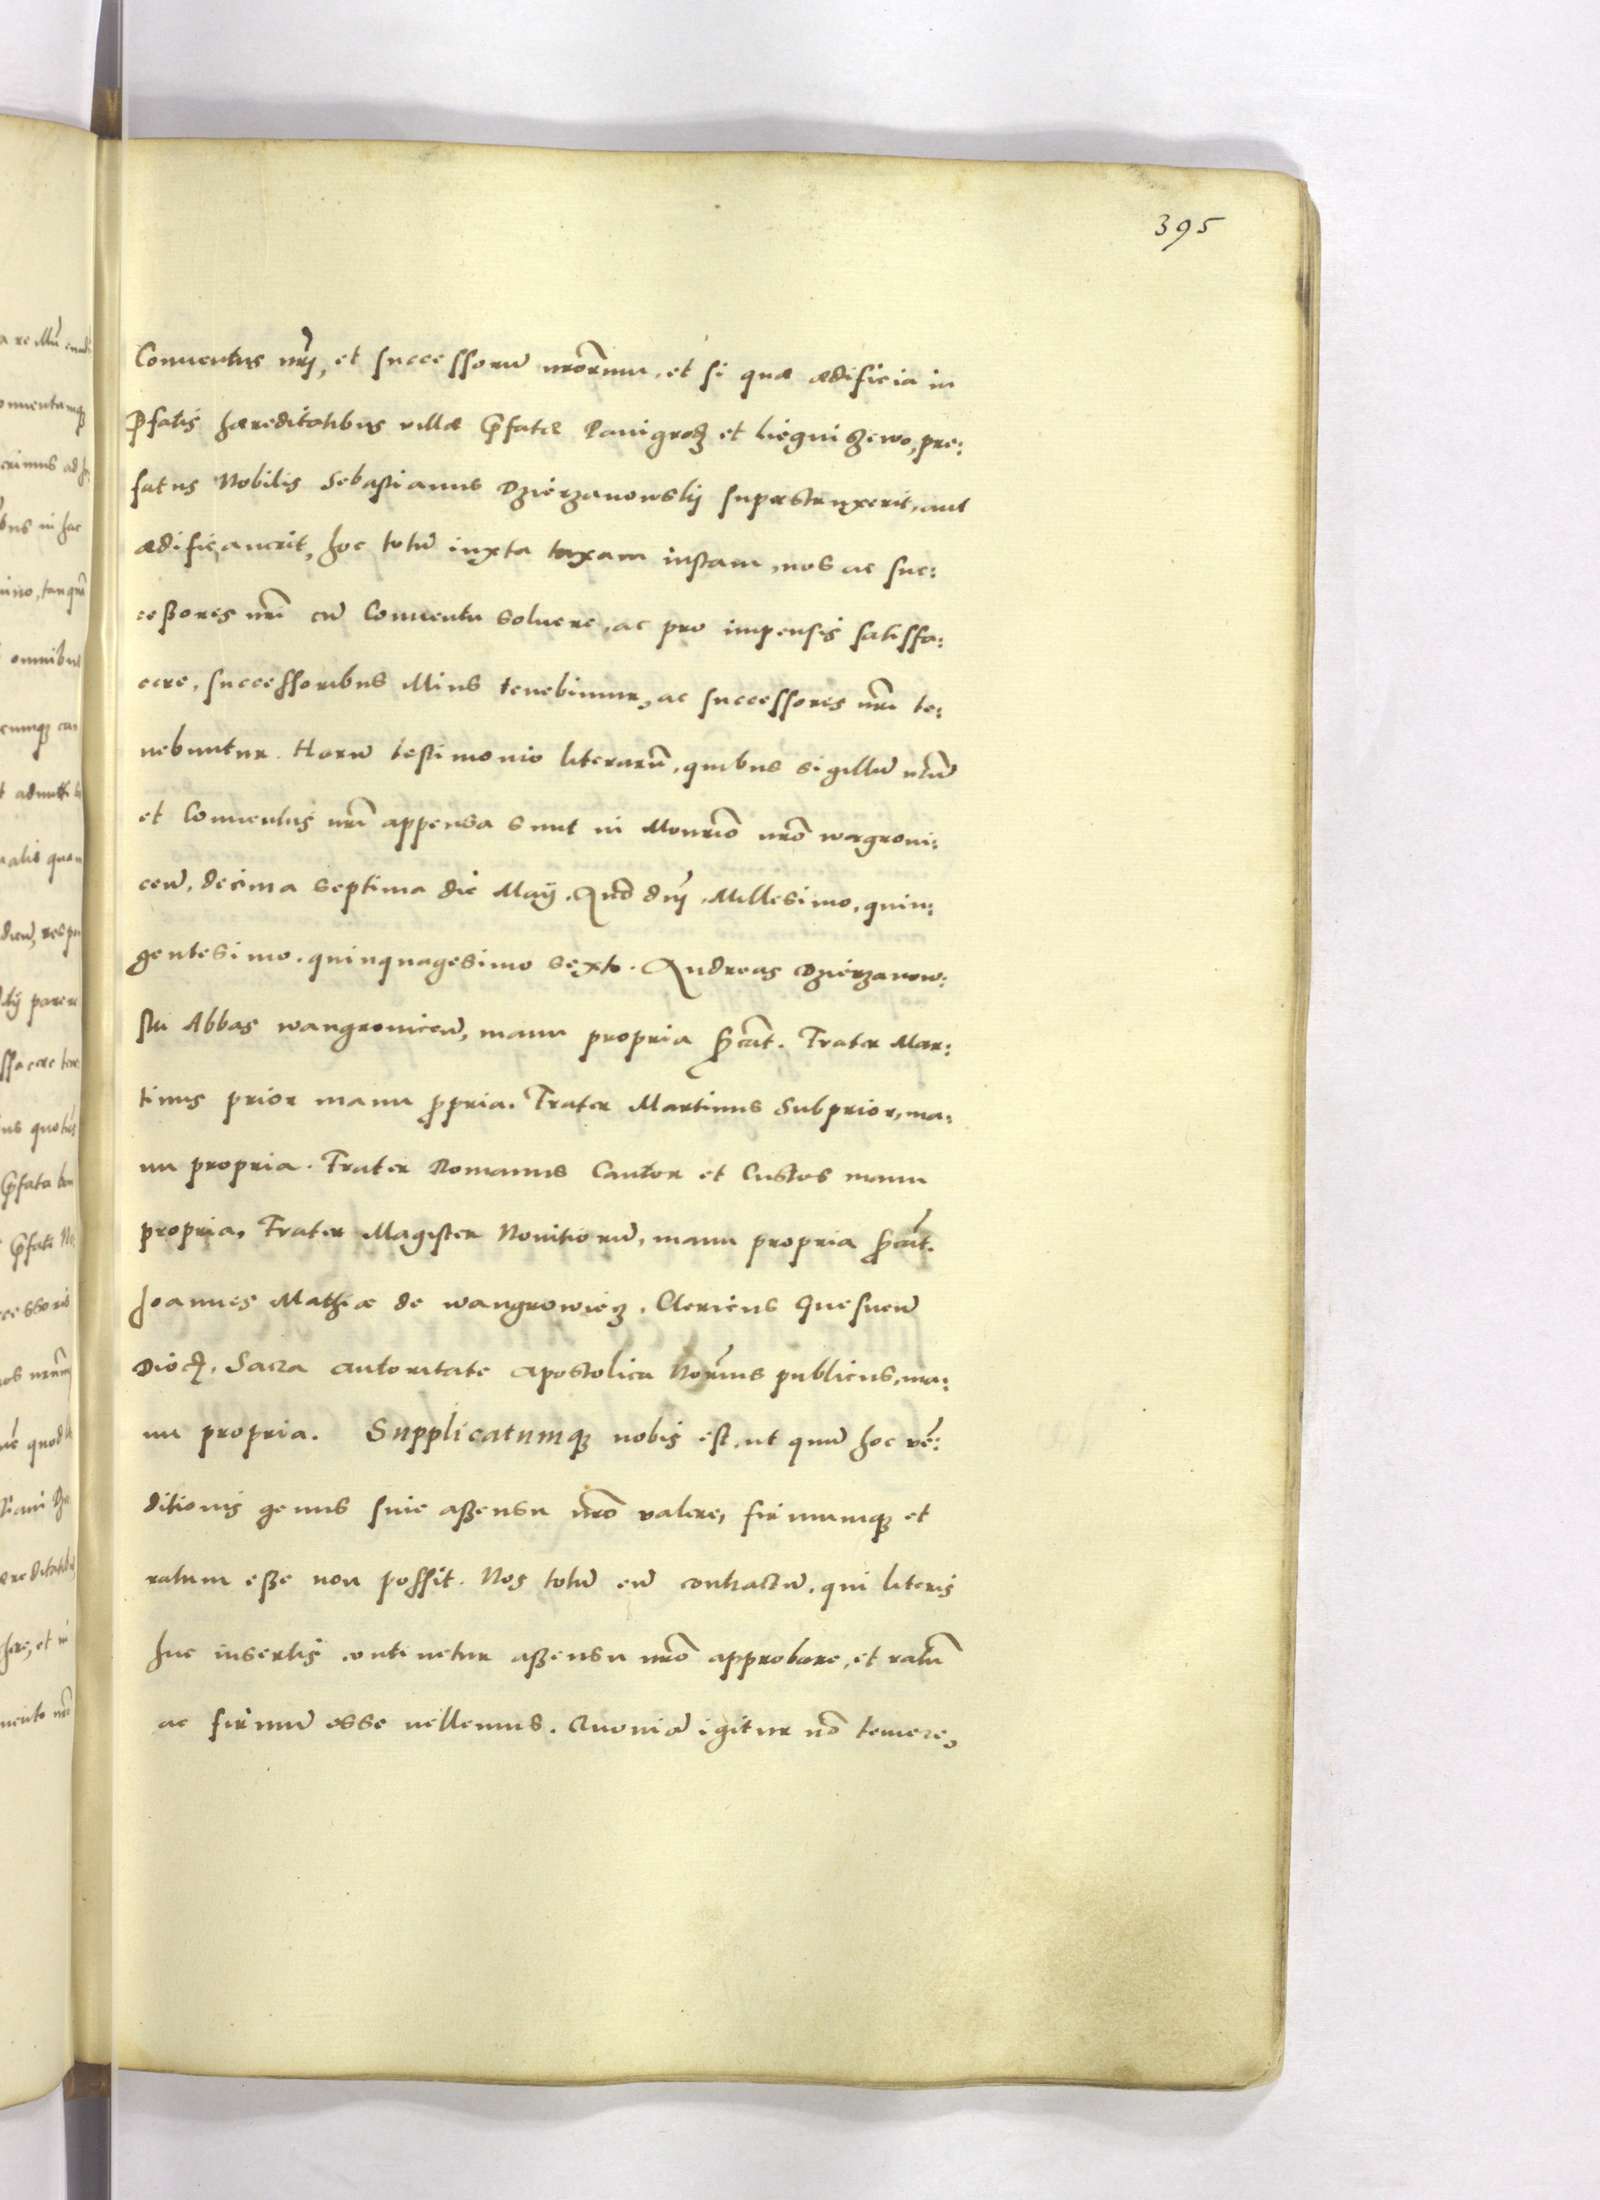 395
Conuentus nrĩ, et successorũ nrõrum, et si quæ ædificia in
Pfatis hæreditatibus villæ Pfatæ Panigrodz et Liegniszewo, pre:
fatus Nobilis Sebastianus Dzierzanowskij superstruxerit, aut
ædificauerit, hoc totũ iuxta taxam iustam, nos ac suc:
ceßores nrĩ cũ Conuentu soluere, ac pro impensis satisfa:
cere, successoribus illius tenebimur, ac successores nrĩ te:
nebuntur. Harũ testimonio literarũ, quibus sigillũ nrũ
et Conuentus nrĩ appensa sunt in Monrĩo nrõ wagroui:
ceñ, decima septima die Maij. Anõ dnĩ. Millesimo, quin:
gentesimo. quinquagesimo sexto. Andreas Dzierzanow:
ski Abbas wangrouiceñ, manu propria Pcũt. Frater Mar:
tinus prior manu ppria. Frater Martinus Subprior, ma:
nu propria. Frater Romanus Cantor et Custos manu
propria, Frater Magister Nouitiorũ, manu propria Pcũt.
Joannes Mathiæ de wangrowiecz. Clericus Gnesneñ
Dioc. Sacra autoritate Apostolica Norĩus publicus, ma:
nu propria. Supplicatumq; nobis est, ut quũ hoc vẽ:
ditionis genus sine aßensu nrõ valere, firmumq; et
ratum eße non possit. Nos totũ eũ contractũ, qui literis
huc insertis continetur aßensu nrõ approbare, et ratũ
ac firmũ esse vellemus. Quoniã igitur nõ temere,